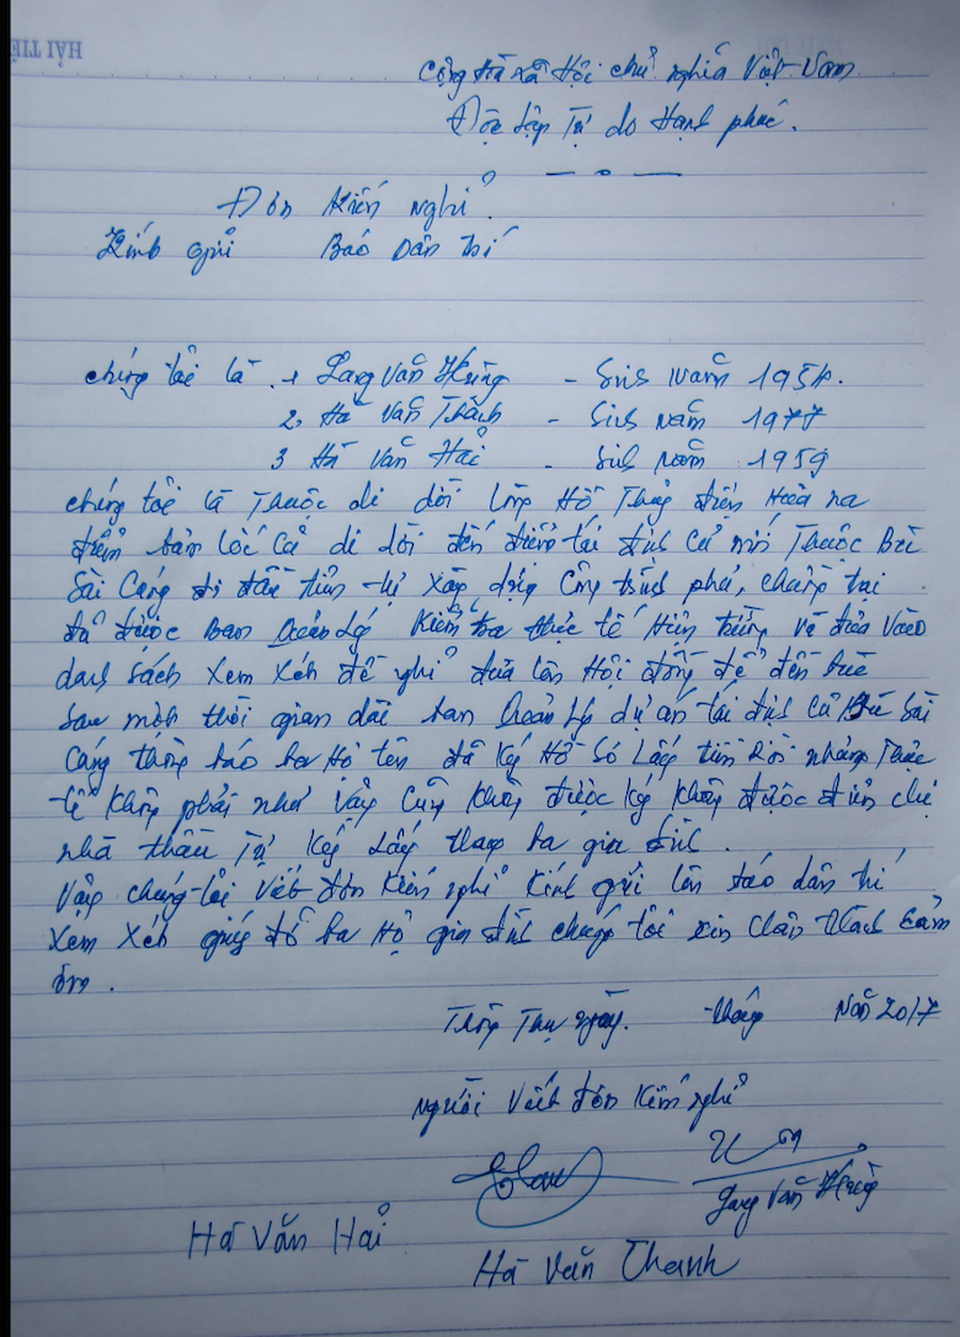 HẢI TIẾ
Cộng hòa xã Hội chủ nghĩa Việt Nam
Độc lập Tự do Hạnh phúc.
Đơn kiến nghị.
Kính gửi Báo Dân trí
chúng tôi là 1 Lang Văn Hùng - Sinh Năm 1954.
2, Hà Văn Thành - Sinh Năm 1977
3 Hà Văn Hải - Sinh Năm 1959
chúng tôi là Thuộc di dời lòng Hồ Thủy điện Hủa na
điểm bản Lốc Cả di dời đến điểm tái định cư mới Thuộc Bù
Sài Cáng đã đầu tiên tự xây dựng Công trình phụ, chuồng trại
đã được Ban Quản Lý kiểm tra thực tế Hiện trường và đưa vào
danh sách xem xét đề nghị đưa lên Hội đồng để đền bù
sau một thời gian dài ban Quản Lý dự án tái định cư Bù Sài
Cáng thông báo ba Hộ tên đã ký Hồ Sơ Lấy tiền Rồi nhưng Thực
tế không phải như vậy cũng không được ký không được điểm chỉ
nhà thầu Tự ký Lấy thay ba gia đình.
Vậy chúng tôi viết đơn kiến nghị kính gửi lên báo dân trí
xem xét giúp đỡ ba Hộ gia đình chúng tôi xin chân thành cảm
ơn.
Thông Thụ ngày. tháng Năm 2017
Người viết đơn kiến nghị
Lang Văn Hùng
Hà Văn Hải
Hà Văn Thanh